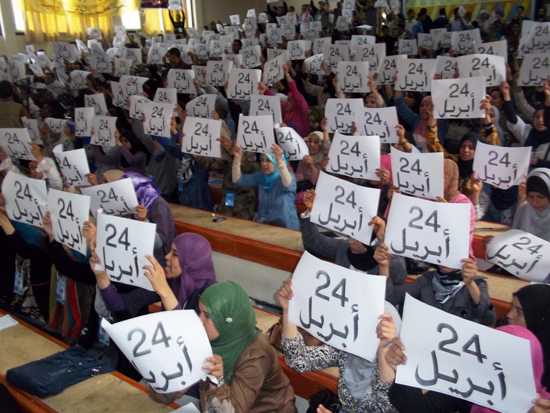 24
أبريل